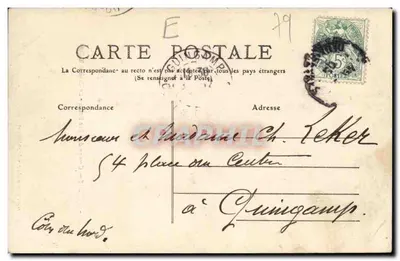 E
79
CARTE POSTALE
La Correspondance au recto n'est pas acceptée par tous les pays étrangers
(Se renseigner à la Poste)
Correspondance
Adresse
Monsieur et Madame Ch. Leker
54 place du Centre
à Guingamp.
Côtes du Nord.